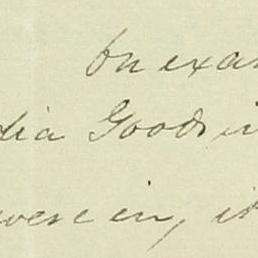 On exa
dia Goods i
were in, i